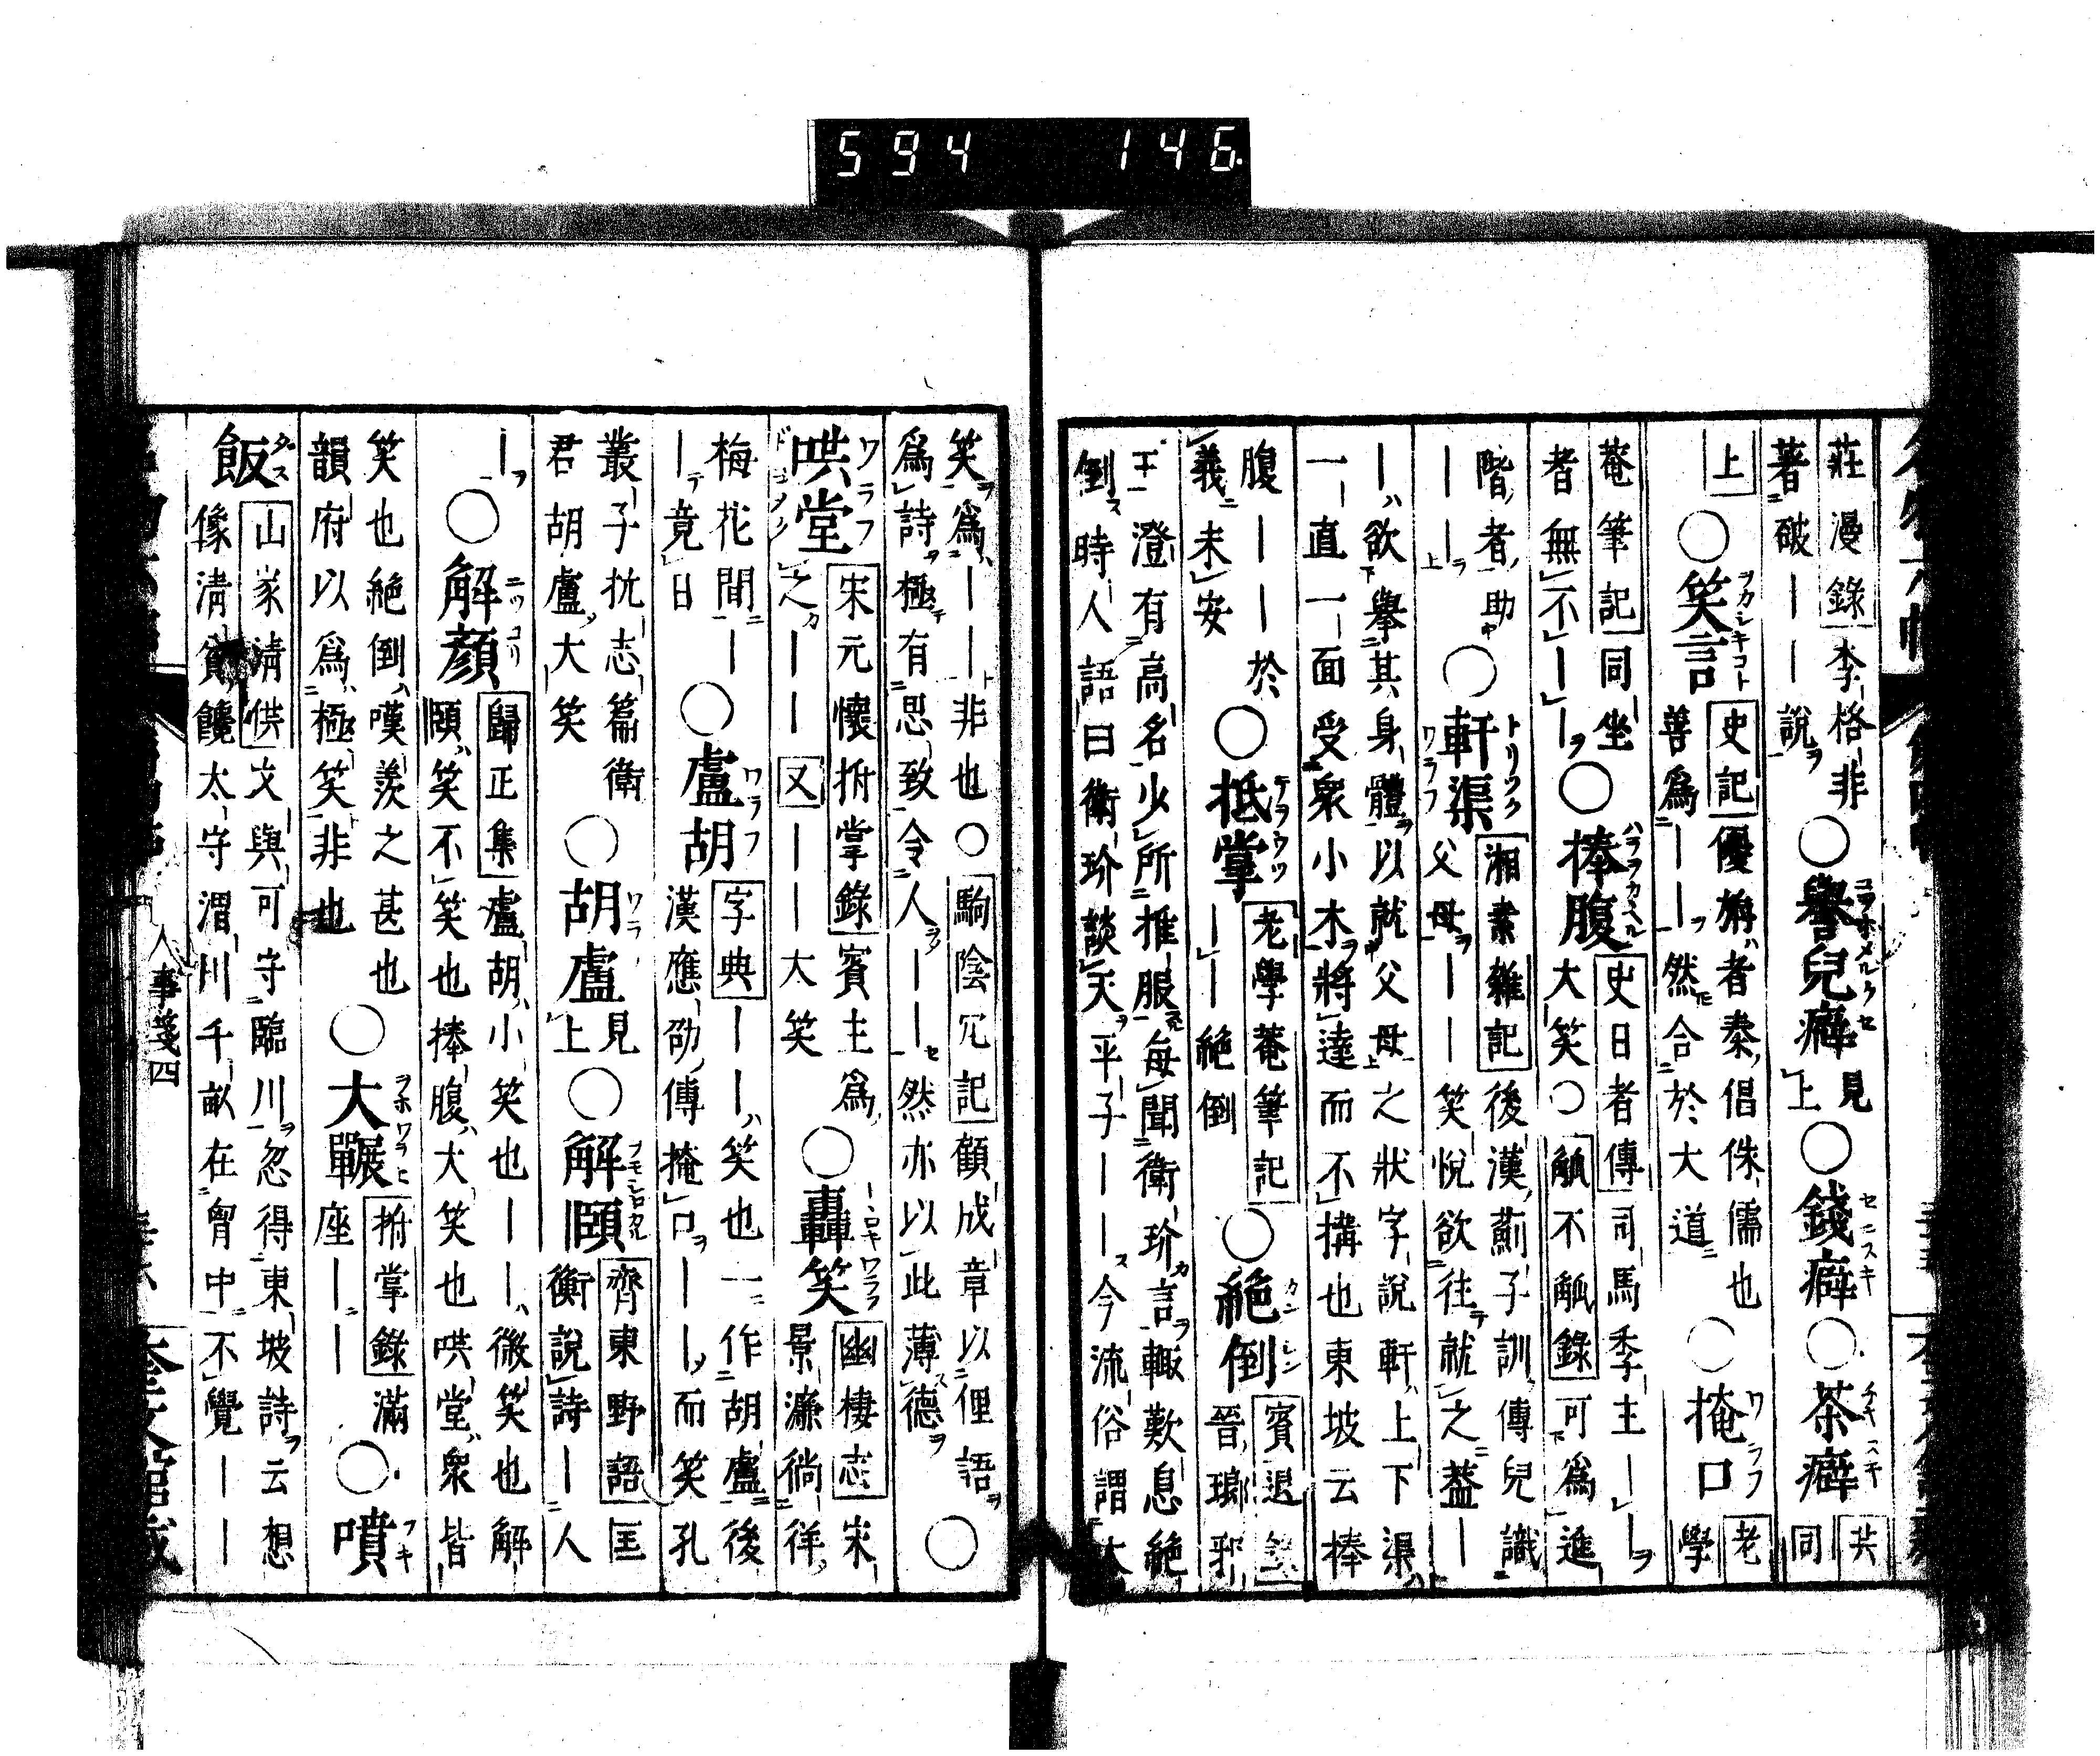 594 146
莊漫錄李格非
著破――說
○譽兒癖見
上
○錢癖
○茶癖共
同
上
○笑言史記優旃者秦倡侏儒也
善爲――然合於大道
○掩口老
學
菴筆記同坐
者無不――
○捧腹史日者傳司馬季主――
大笑○觚不觚錄可爲進
階者助
――
○軒渠湘素雜記後漢薊子訓傳兒識
父母――笑悅欲往就之蓋―
―欲舉其身體以就父母之狀字說軒上下渠
一直一面受衆小水將達而不搆也東坡云捧
腹――於
義未安
○抵掌老學菴筆記
――絕倒
○絕倒賓退錄
晉瑯邪
王澄有高名少所推服每聞衛玠言輙歎息絕
倒時人語曰衛玠談天平子――今流俗謂大
笑爲――非也○駒陰冗記顧成章以俚語
爲詩極有思致令人――然亦以此薄德
○
哄堂宋元懷拊掌錄賓主爲
之―――又――大笑
○轟笑幽棲志宋
景濂徜徉
梅花間―
―竟日
○盧胡字典――笑也一作胡盧後
漢應劭傳掩口――而笑孔
叢子抗志篇衛
君胡盧大笑
○胡盧見
上
○解頤齊東野語匡
衡說詩―人
―
○解顏歸正集盧胡小笑也――微笑也解
頤笑不笑也捧腹大笑也哄堂衆皆
笑也絕倒嘆羨之甚也
韻府以爲極笑非也
○大囅拊掌錄滿
座――
○噴
飯山家清供文與可守臨川忽得東坡詩云想
像清貧饞太守渭川千畝在胷中不覺――
人事箋四